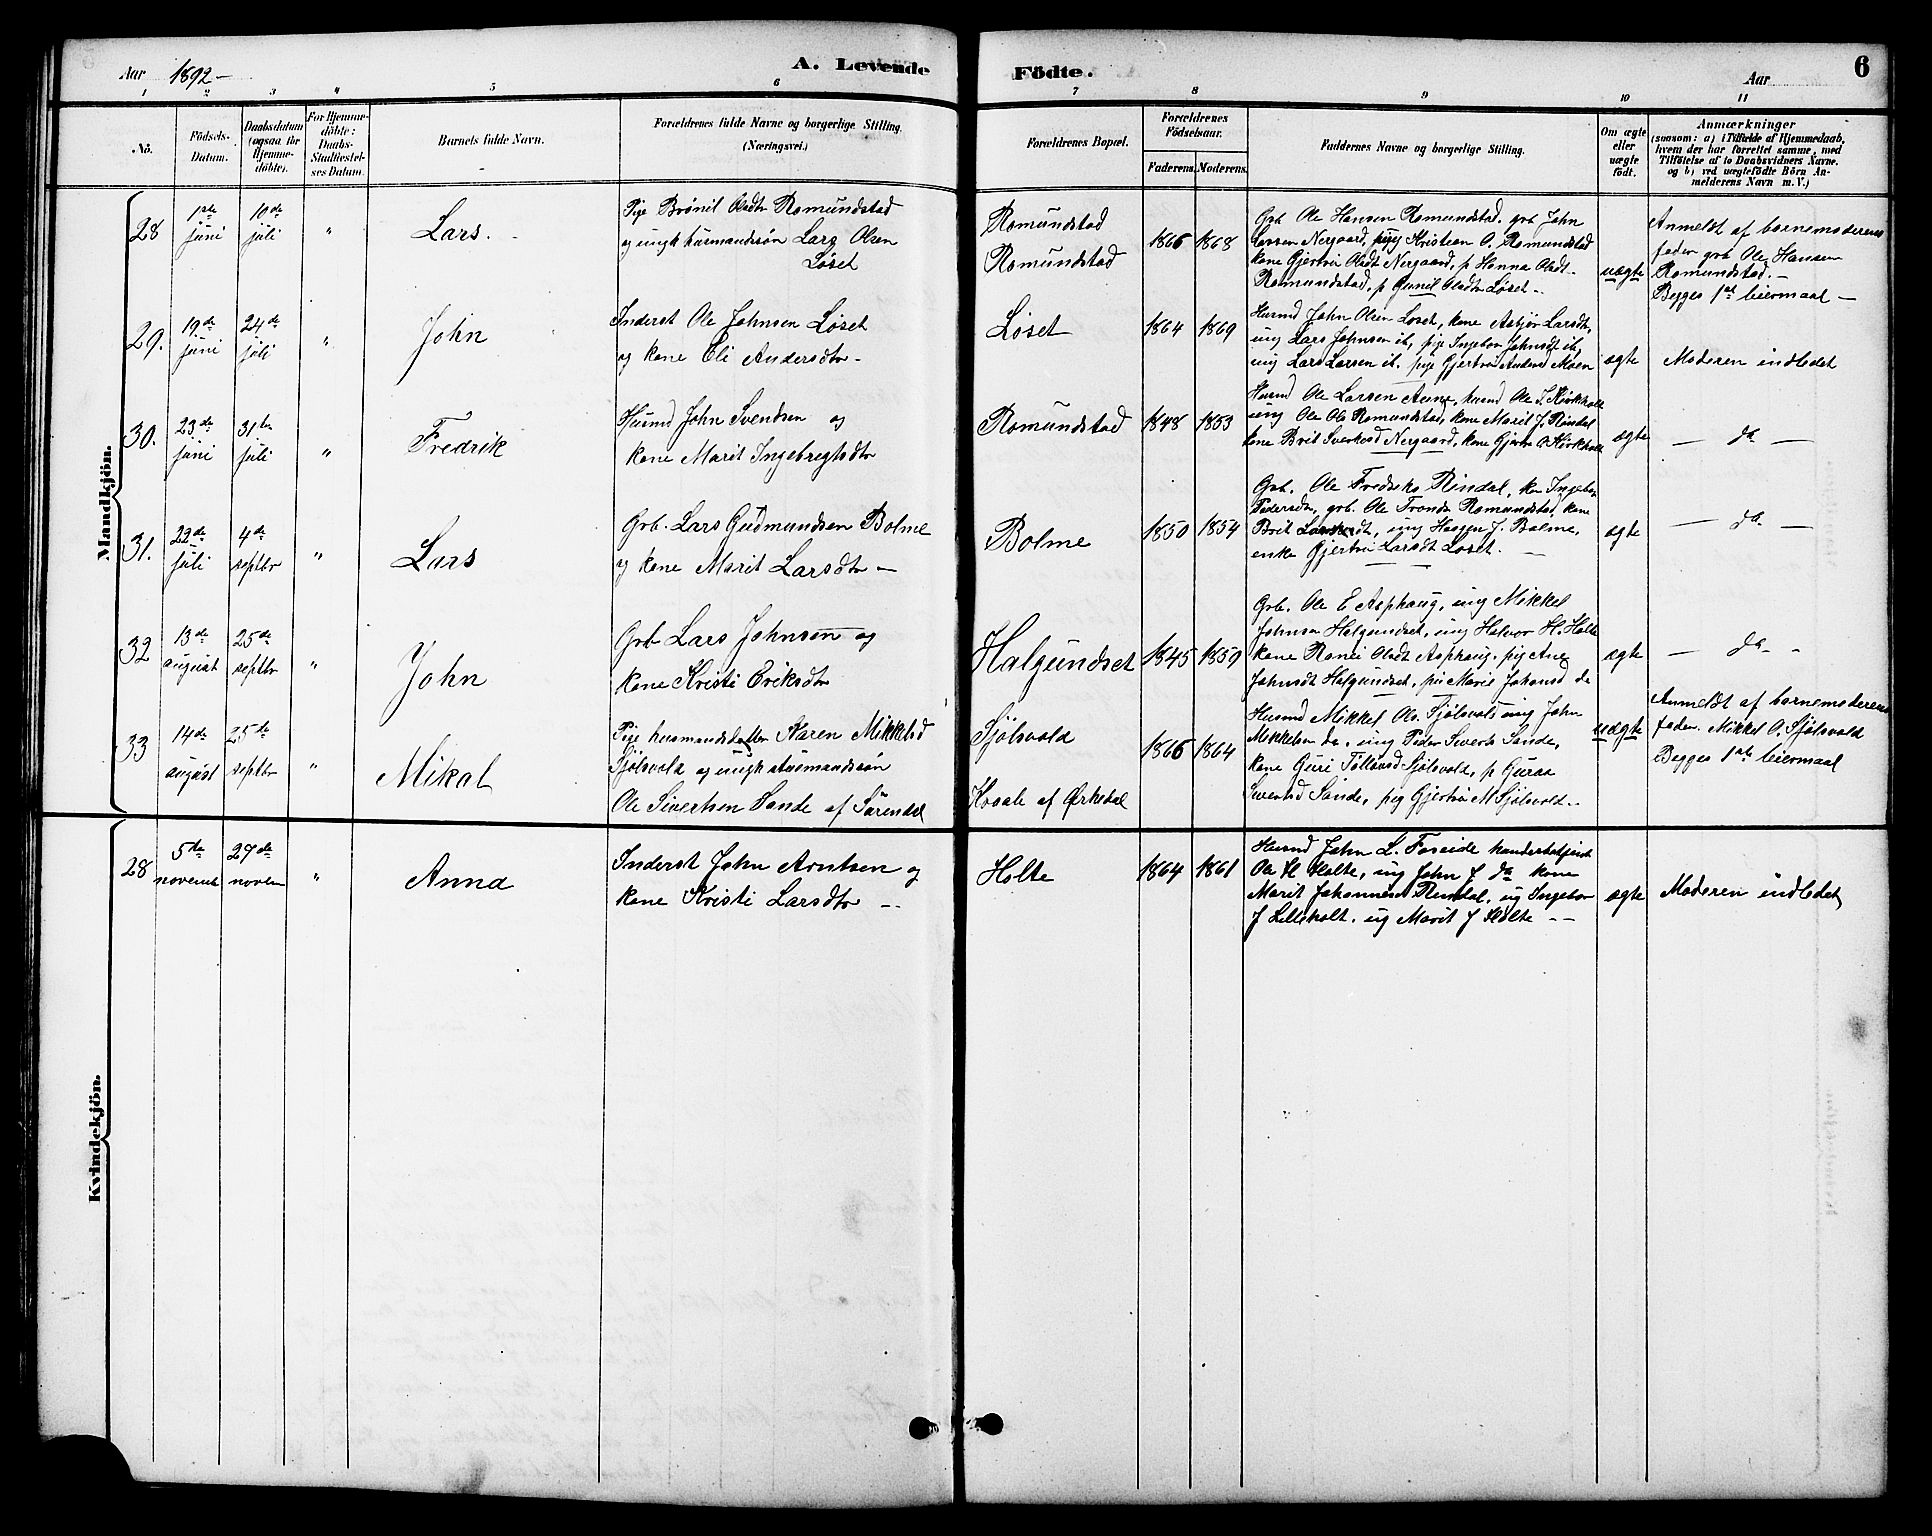 Aar 1892 –
A. Levende
Födte.
Aar
6
1 2 3 4 5 6 7 8 9 10 11
No.
Födsels-
Datum.
Daabsdatum
(ogsaa for
Hjemme-
döbte).
For Hjemme-
döbte:
Daabs-
Stadfæstel-
ses Datum.
Barnets fulde Navn.
Forældrenes fulde Navne og borgerlige Stilling.
(Næringsvei.)
Forældrenes Bopæl.
Forældrenes
Födselsaar.
Faderens. Moderens.
Faddernes Navne og borgerlige Stilling.
Om ægte
eller
uægte
født.
Anmærkninger
(saasom: a) i Tilfælde af Hjemmedaab,
hvem der har forrettet samme, med
Tilföielse af to Daabsvidners Navne,
og b) ved uægtefödte Börn An-
melderens Navn m. V.)
Mandkjön.
28
1ste
juni
10de
juli
"
Lars.
Pige Brönil Olsdtr Romundstad
og ungk husmandssön Lars Olsen
Löset
Romundstad
Romundstad
1866 1868
Grb Ole Hansen Romundstad. grb John
Larsen Nergaard, pige Kristian O. Romundstad
kone Gjertrü Olsdt Nergaard, p Hanna Olsdt.
Romundstad, p Gunil Olsdtr Löset –
uægte
Anmeldt af barnemoderens
fader grb Ole Hansen
Romundstad. –
Begges 1st leiermaal –
29.
19de
juni
24de
juli
"
John
Inderst Ole Johnsen Löset
og kone Eli Andersdtr –
Löset
1864 1869
Husmd John Olsen Löset, kone Astrjör Larsdt,
ung Lars Johnsen ib, pige Ingebor Johnsdt ib,
ung Lars Larsen ib. pige Gjertrü Andersd Moen
ægte
Moderen indledet
30.
23de
juni
31te
juli
"
Fredrik
Husmd John Svendsen og
kone Marit Ingebregtsdtr
Romundstad
1848 1853
Husmd Ole Larsen Aune, husmd Ole J. Kirkholt
ung Ole Ols Romundstad, kone Marit J. Rindal
kone Brit Sverkesd Nergaard, kone Gjertru O. Kirkholt
ægte
– da –
31.
22de
juli
4de
septbr
"
Lars
Grb. Lars Gudmundsen Bolme
og kone Marit Larsdtr –
Bolme
1850 1854
Grb. Ole Fredriks Rindal, kon Ingebor
Pedersdtr, grb. Ole Tronds Romundstad, kone
Brit Larsdt, ung Haagen J. Bolme,
enke Gjertrü Larsdt Löset. –
ægte
– da –
32
13de
august
25de
septbr
"
John
Grb Lars Johnsen og
kone Kristi Eriksdtr
Halgundset
1845 1850
Grb. Ole E Asphaug, ung Mikkel
Johnsen Halgundset, ung Halvor H. Holte
kone Ranei Olsdt Asphaug. pig Ane
Johnsdt Halgundset, pii Marie Johansd da
ægte
– da –
33
14de
august
25de
septbr
"
Mikal
Pige husmandsdatter Karen Mikkelsd
Sjölsvold og ungk husmandssön
Ole Sivertsen Sande af Sürendal
Sjölsvold
Kosale af Ørkedal
1866 1864
Husmd Mikkel Ols. Sjölsvold, ung John
Mikkelsen da, ung Peder Siverts Sande,
kone Guri Tollovsd Sjölsvold, p Guroa
Sivertsd Sande, pig Gjertrü M Sjölsvold..
uægte
Anmeldt af barnemoderens
fader. Mikkel O. Sjölsvold
Begges 1ste leiermaal
Kvindekjön.
28
5de
novembr
27de
novem
"
Anna
Inderst John Arntsen og
kone Kristi Larsdtr –
Holte
1864 1861
Husmd John L. Foseide
Ole H Holte, ung John J da kone
Marit Johannesd Rindal, ug Ingebor
J Lilleholt. ug Marit J Holte – –
ægte
Moderen indledet